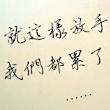 就這樣放手
我們都累了
……